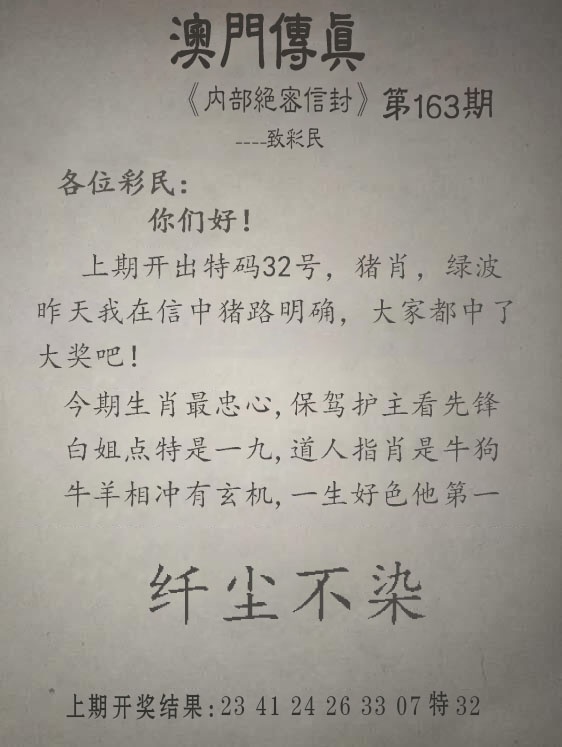 澳門傳真
《内部絕密信封》第163期
----致彩民
各位彩民：
你们好！
上期开出特码32号，猪肖，绿波
昨天我在信中猪路明确，大家都中了
大奖吧！
今期生肖最忠心,保驾护主看先锋
白姐点特是一九,道人指肖是牛狗
牛羊相冲有玄机,一生好色他第一
纤尘不染
上期开奖结果:23 41 24 26 33 07 特 32